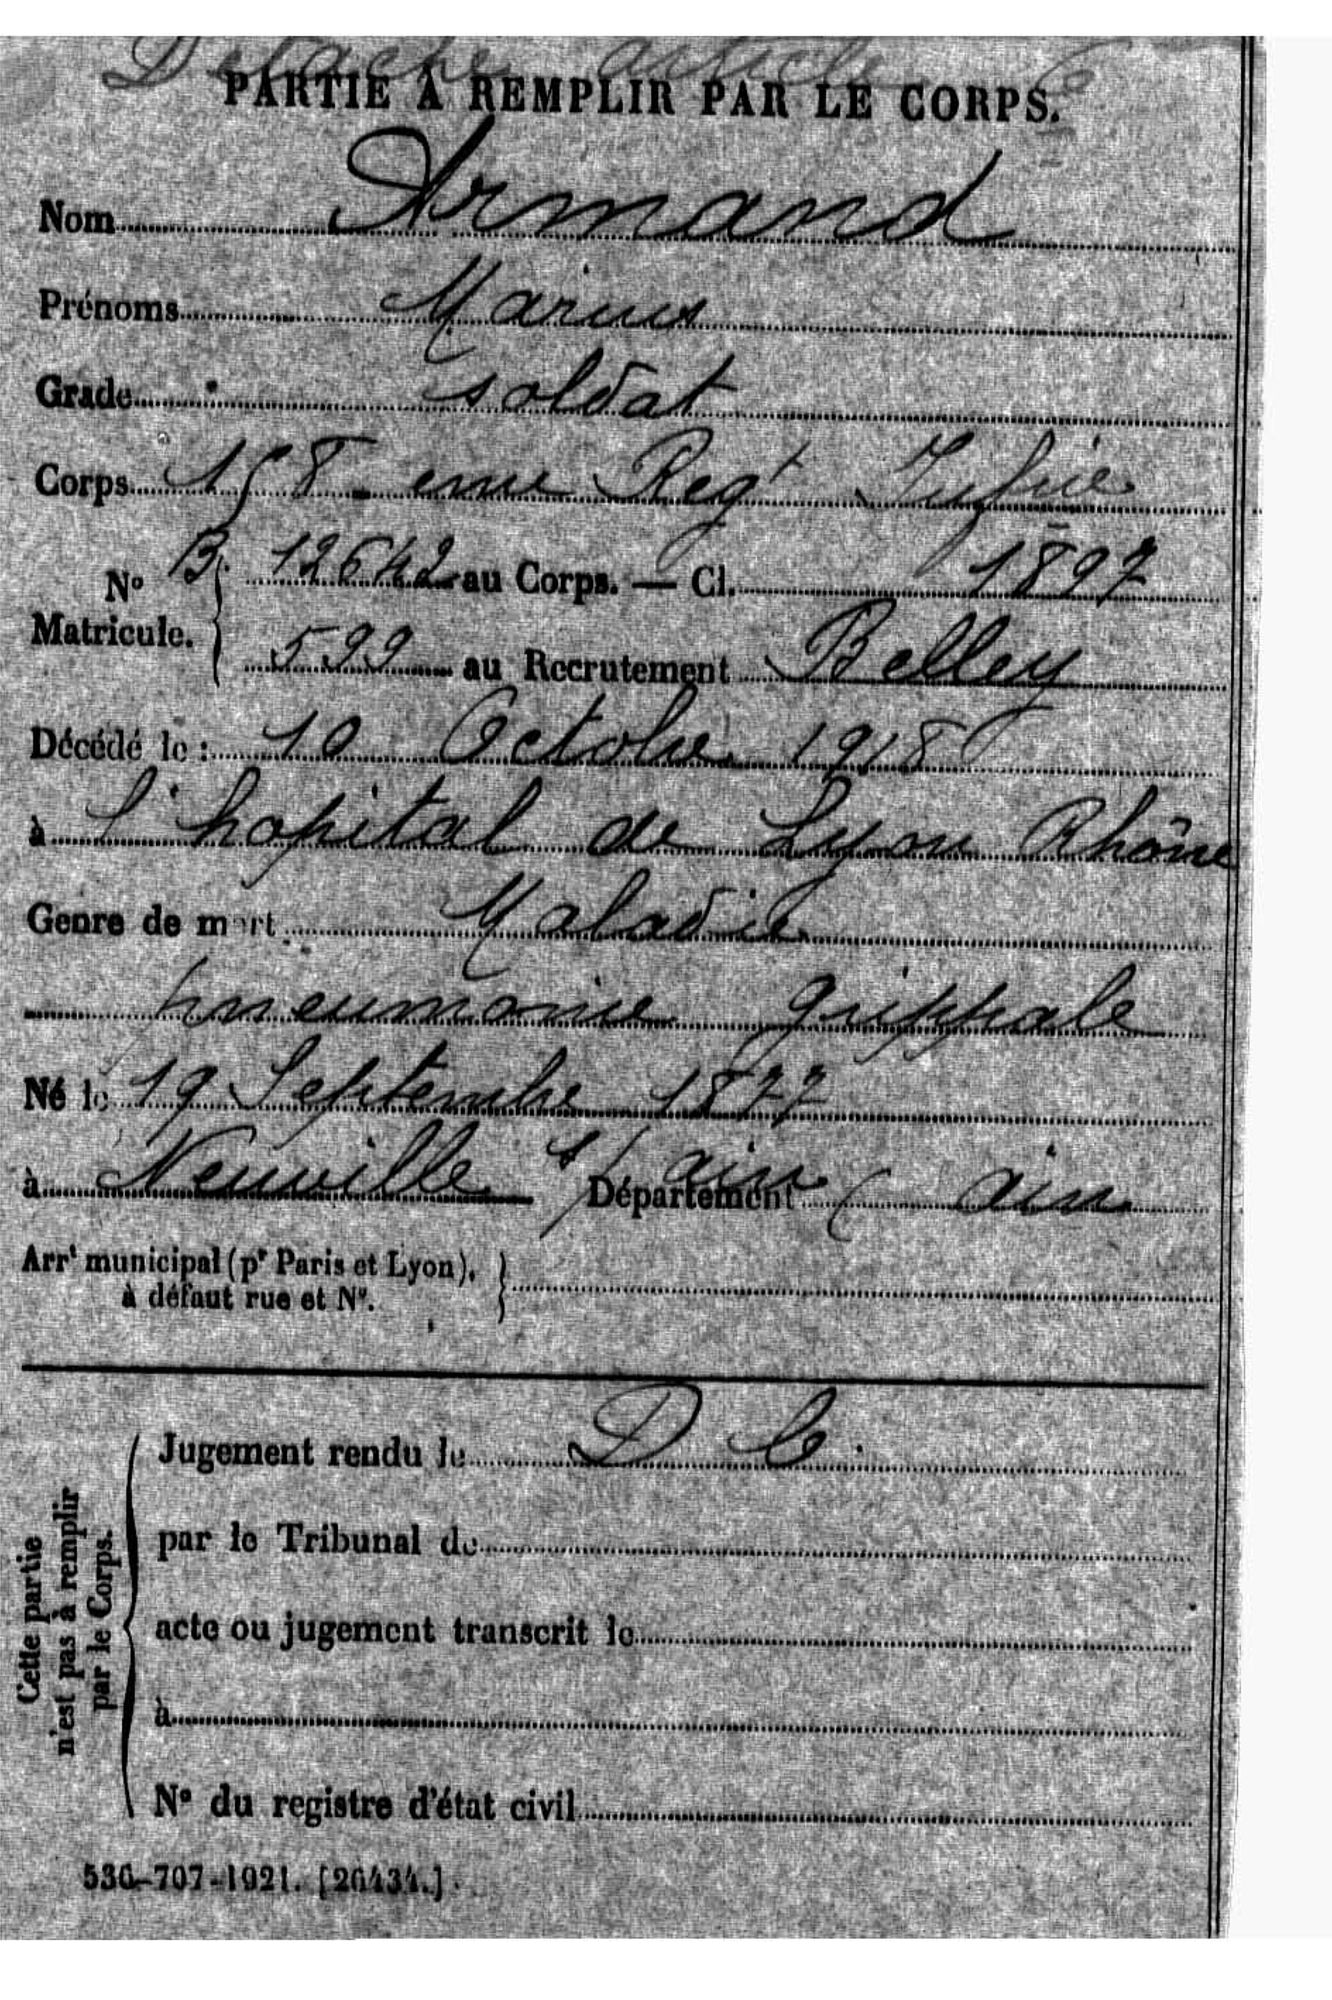 Détaché article 6
PARTIE À REMPLIR PAR LE CORPS.
Nom Armand
Prénoms Marius
Grade soldat
Corps 158 eme Regt Infrie
No B. 12642 au Corps. — Cl. 1897
Matricule. 599 au Recrutement Belley
Décédé le : 10 Octobre 1918
à l'hopital de Lyon Rhône
Genre de mort Maladie
pneumonie grippale
Né le 19 Septembre 1877
à Neuville s/ ain Département ( ain
Arrt municipal (pr Paris et Lyon),
à défaut rue et No.
Jugement rendu le D C.
par le Tribunal de
acte ou jugement transcrit le
à
No du registre d'état civil
Cette partie
n'est pas à remplir
par le Corps.
530-707-1921. [26434.]